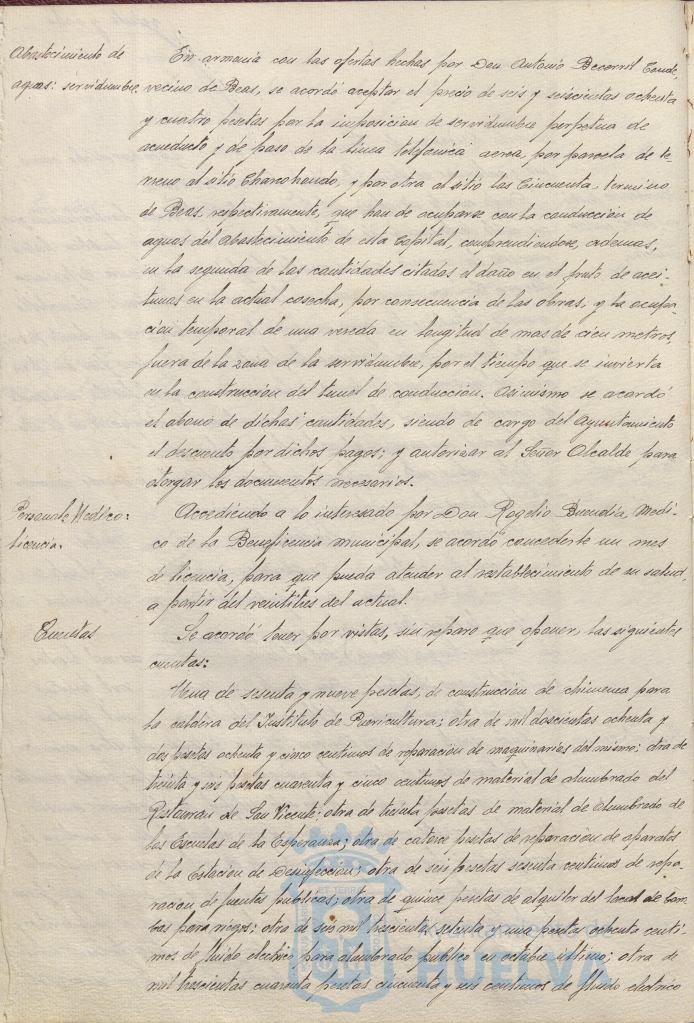 Abastecimiento de
aguas: servidumbre.
En armonia con las ofertas hechas por Don Antonio Becerril Conde,
vecino de Beas, se acordó aceptar el precio de seis y seiscientas ochenta
y cuatro pesetas por la imposicion de servidumbre perpetua de
acueducto y de paso de la linea telefonica aerea, por parcela de te-
rreno al sitio Charcohondo, y por otra al sitio las Cincuenta, termino
de Beas, respectivamente, que han de ocuparse con la conduccion de
aguas del abastecimiento de esta Capital, comprendiendose, ademas,
en la segunda de las cantidades citadas el daño en el fruto de acei-
tunas en la actual cosecha, por consecuencia de las obras, y la ocupa-
cion temporal de una vereda en longitud de mas de cien metros,
fuera de la zona de la servidumbre, por el tiempo que se invierta
en la construccion del tunel de conduccion. Asimismo se acordó
el abono de dichas cantidades, siendo de cargo del Ayuntamiento
el descuento por dichos pagos; y autorizar al Señor Alcalde para
otorgar los documentos necesarios.
Personal Medico:
licencia.
Accediendo a lo interesado por Don Rogelio Buendia, Medi-
co de la Beneficencia municipal, se acordó concederle un mes
de licencia, para que pueda atender al restablecimiento de su salud,
a partir del veintitres del actual.
Cuentas
Se acordó tener por vistas, sin reparo que oponer, las siguientes
cuentas:
Una de sesenta y nueve pesetas, de construccion de chimenea para
la caldera del Instituto de Puericultura; otra de mil doscientas ochenta y
dos pesetas ochenta y cinco centimos de reparacion de maquinarias del mismo; otra de
treinta y seis pesetas cuarenta y cinco centimos de material de alumbrado del
de San Vicente; otra de treinta pesetas de material de alumbrado de
las Escuelas de la Esperanza; otra de catorce pesetas de reparacion de aparatos
de la Estacion de Desinfeccion; otra de seis pesetas sesenta centimos de repa-
racion de fuentes publicas; otra de quince pesetas de alquiler del local de bom-
bas para riegos; otra de seis mil trescientas setenta y una pesetas ochenta centi-
mos de fluido electrico para alumbrado publico en octubre ultimo; otra de
mil trescientas cuarenta pesetas cincuenta y seis centimos de fluido electrico
HUELVA